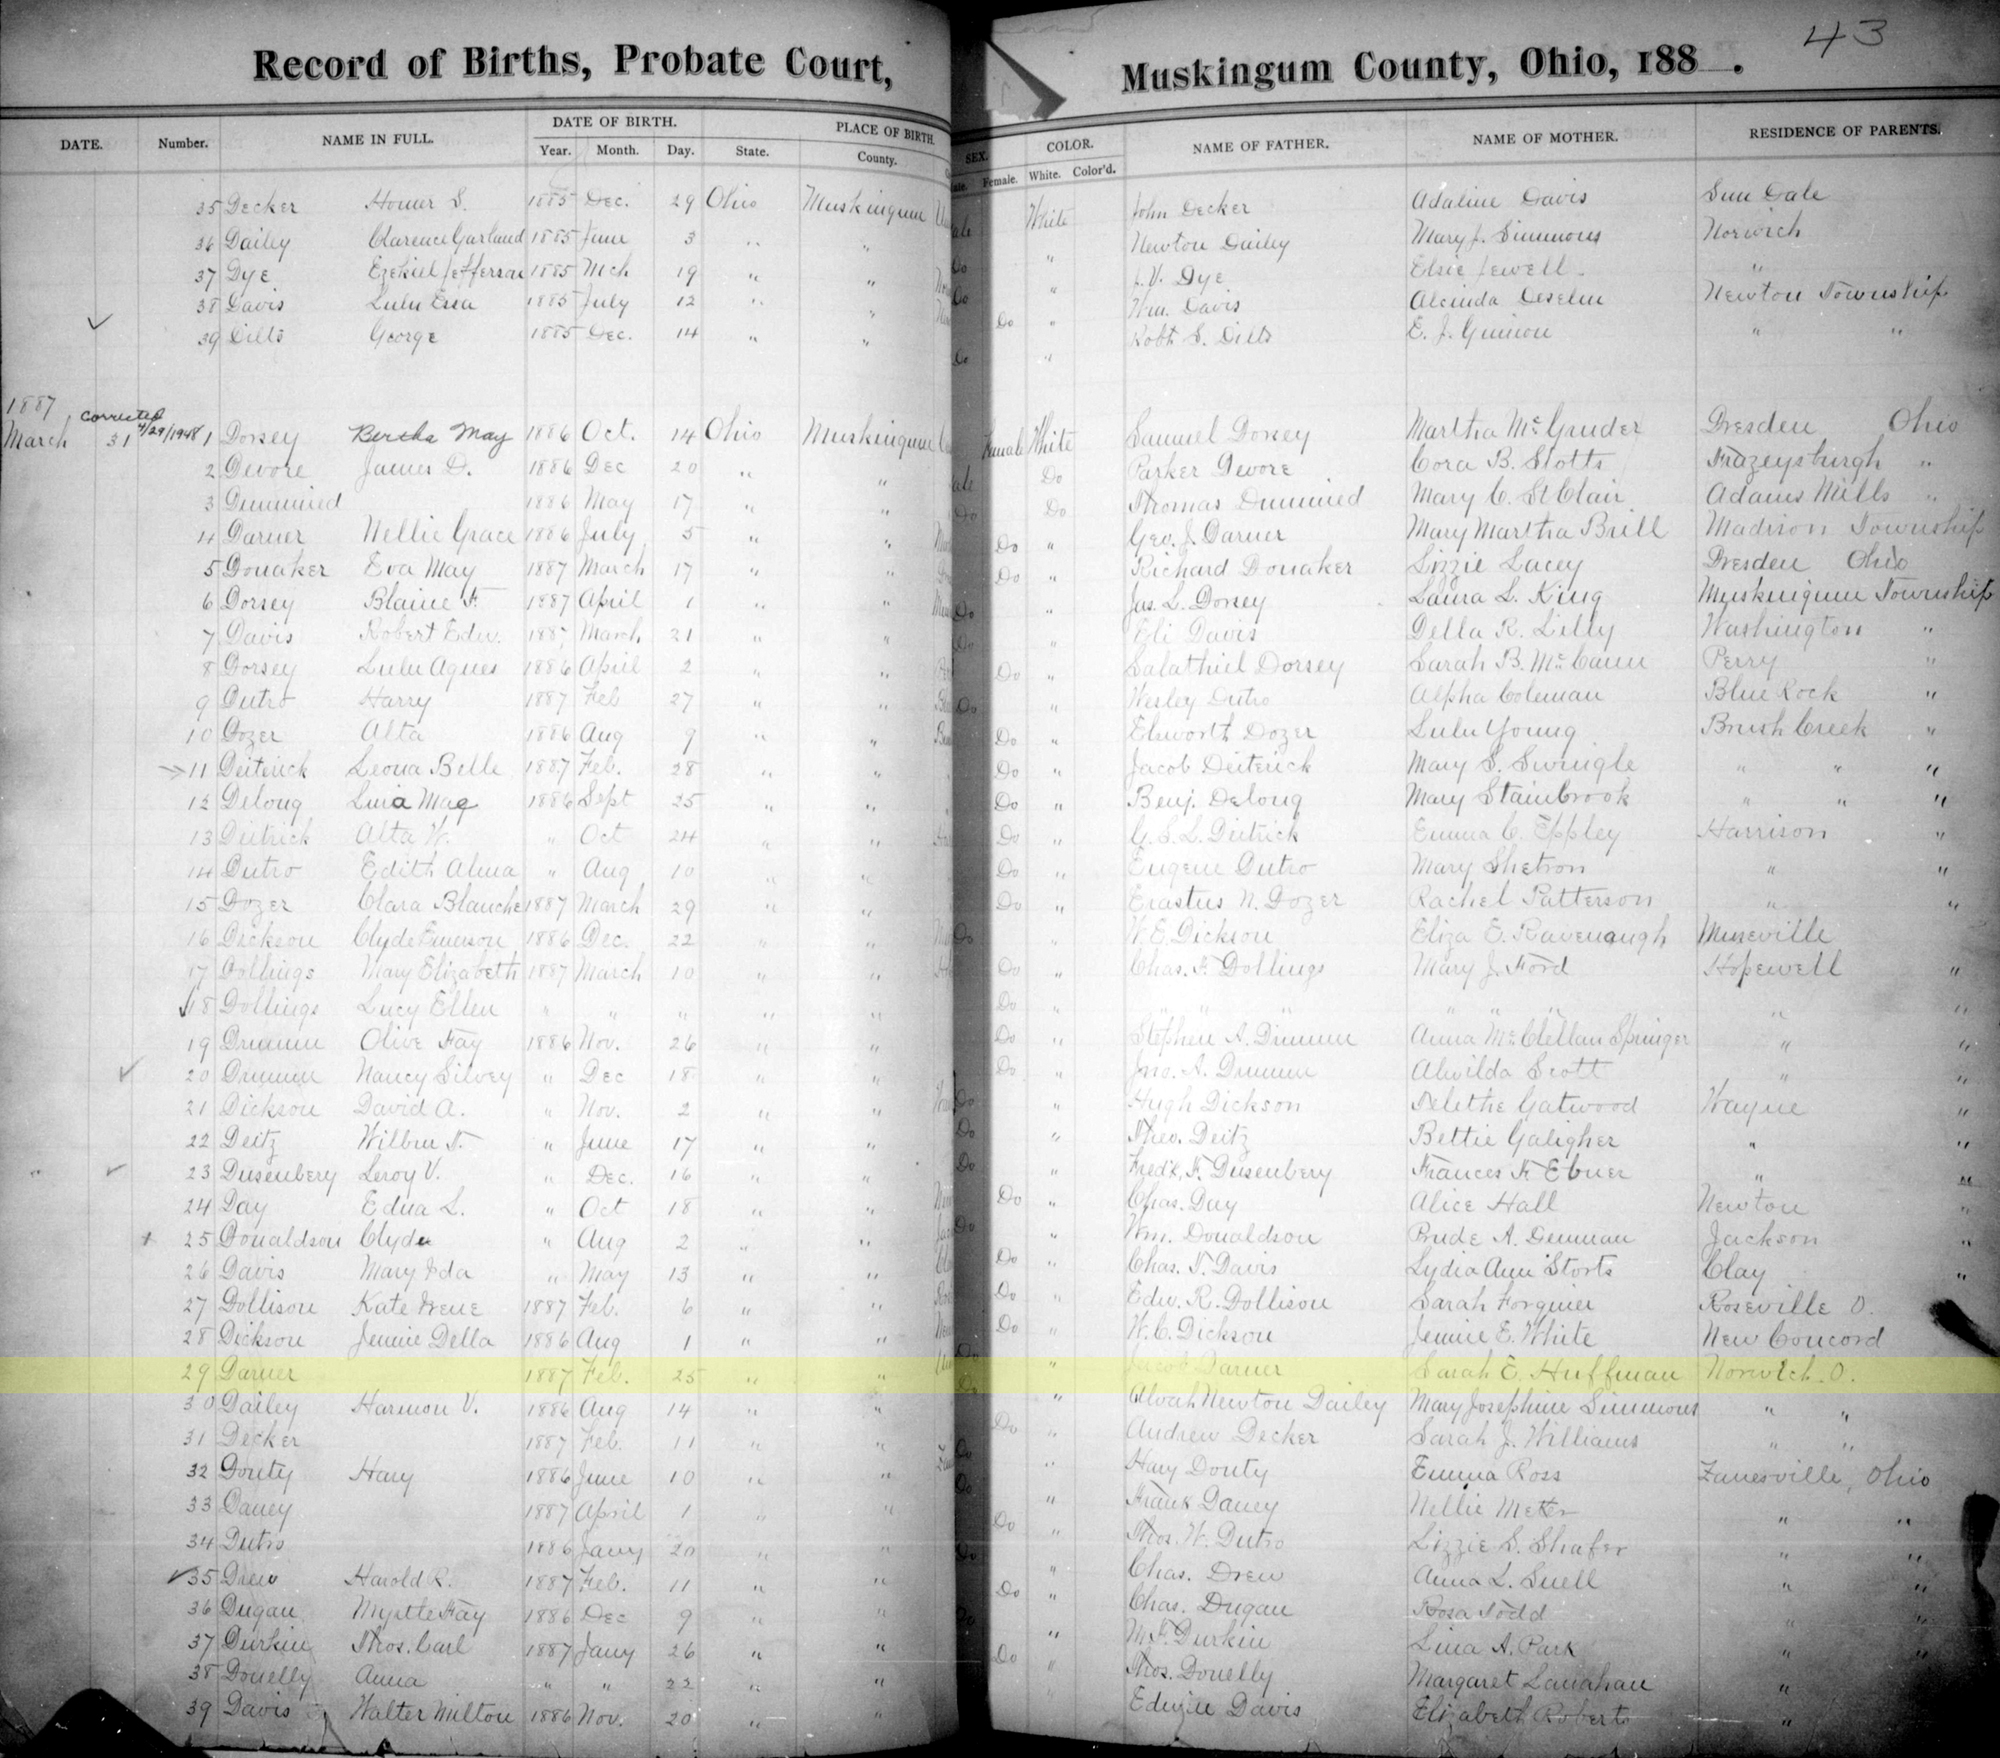 43
Record of Births, Probate Court, Muskingum County, Ohio, 188 .
DATE. Number. NAME IN FULL. DATE OF BIRTH. PLACE OF BIRTH. SEX. COLOR. NAME OF FATHER. NAME OF MOTHER. RESIDENCE OF PARENTS.
Year. Month. Day. State. County. Female. White. Color'd.
35 Decker Homer S. 1885 Dec. 29 Ohio Muskingum White John Decker Adaline Davis Sun Dale
36 Dailey Clarence Garland 1885 June 3 " " " Newton Dailey Mary J. Simmons Norwich
37 Dye Ezekiel Jefferson 1885 Mch 19 " " Do " J. V. Dye Elsie Jewell "
38 Davis Lulu Essa 1885 July 12 " " Do " Wm. Davis Alcinda Deselm Newton Township
39 Dilts George 1885 Dec. 14 " " Do " Robt S. Dilts E. J. Guinon " "
1887
March 31 corrected 4/29/1948 1 Dorsey Bertha May 1886 Oct. 14 Ohio Muskingum Female White Samuel Dorsey Martha McGruder Dresden Ohio
2 Devore James D. 1886 Dec 20 " " Do Parker Devore Cora B. Slotts Frazeysburgh "
3 Dummied 1886 May 17 " " Do Do Thomas Dummied Mary C. St Clair Adams Mills "
4 Darner Nellie Grace 1886 July 5 " " Do " Geo. J. Darner Mary Martha Brill Madison Township
5 Donaker Eva May 1887 March 17 " " Do " Richard Donaker Lizzie Lacey Dresden Ohio
6 Dorsey Blaine F. 1887 April 1 " " Do " Jas. L. Dorsey Laura L. King Muskingum Township
7 Davis Robert Edw. 1887 March 21 " " Do " Eli Davis Della R. Lilly Washington "
8 Dorsey Lulu Agnes 1886 April 2 " " Do " Salathiel Dorsey Sarah B. McCann Perry "
9 Dutro Harry 1887 Feb 27 " " Do " Wesley Dutro Alpha Coleman Blue Rock "
10 Dozer Alta 1886 Aug 9 " " Do " Elsworth Dozer Lulu Young Brush Creek "
11 Deiterick Leona Belle 1887 Feb. 28 " " Do " Jacob Deiterick Mary S. Swingle " " "
12 Delong Luia Mae 1886 Sept 25 " " Do " Benj. Delong Mary Stainbrook " " "
13 Deitrick Alta W. " Oct 24 " " Do " G. S. L. Deitrick Emma C. Eppley Harrison "
14 Dutro Edith Alma " Aug 10 " " Do " Eugene Dutro Mary Shetron " "
15 Dozer Clara Blanche 1887 March 29 " " Do " Erastus N. Dozer Rachel Patterson " "
16 Dickson Clyde Emerson 1886 Dec. 22 " " Do " W. E. Dickson Eliza E. Ravenaugh Museville
17 Dollings Mary Elizabeth 1887 March 10 " " Do " Chas. F. Dollings Mary J. Ford Hopewell "
18 Dollings Lucy Ellen " " " " " Do " " " " " " " " "
19 Drumm Olive Fay 1886 Nov. 26 " " Do " Stephen A. Drumm Anna McClellan Springer " "
20 Drumm Nancy Silvey " Dec 18 " " Do " Jno. A. Drumm Alwilda Scott " "
21 Dickson David A. " Nov. 2 " " Do " Hugh Dickson Telethe Gatwood Wayne "
22 Deitz Wilbur F. " June 17 " " Do " Theo. Deitz Bettie Galigher " "
" 23 Dusenbery Leroy V. " Dec. 16 " " Do " Fredk. F. Dusenbery Frances F. Ebner " "
24 Day Edna L. " Oct 18 " " Do " Chas. Day Alice Hall Newton "
25 Donaldson Clyde " Aug 2 " " Do " Wm. Donaldson Prude A. Denman Jackson "
26 Davis Mary Ida " May 13 " " Do " Chas. T. Davis Lydia Ann Storts Clay "
27 Dollison Kate Irene 1887 Feb. 6 " " Do " Edw. R. Dollison Sarah Forquer Roseville O.
28 Dickson Jennie Della 1886 Aug 1 " " Do " W. C. Dickson Jennie E. White New Concord
29 Darner 1887 Feb. 25 " " Do " Jacob Darner Sarah E. Huffman Norwich O.
30 Dailey Harmon V. 1886 Aug 14 " " Do " Alvah Newton Dailey Mary Josephine Simmons " "
31 Decker 1887 Feb. 11 " " Do " Andrew Decker Sarah J. Williams " "
32 Douty Hary 1886 June 10 " " Do " Hary Douty Emma Ross Zanesville, Ohio
33 Daney 1887 April 1 " " Do " Frank Daney Nellie Meter " "
34 Dutro 1886 Jany 20 " " Do " Thos. W. Dutro Lizzie S. Shafer " "
35 Drew Harold R. 1887 Feb. 11 " " Do " Chas. Drew Anna L. Snell " "
36 Dugan Myrtle Fay 1886 Dec 9 " " Do " Chas. Dugan Rosa Todd " "
37 Durkin Thos. Carl 1887 Jany 26 " " Do " M. F. Durkin Lina A. Park " "
38 Donelly Anna " " 22 " " Do " Thos. Donelly Margaret Lanahan "
39 Davis Walter Milton 1886 Nov. 20 " " Edwin Davis Elizabeth Roberts "